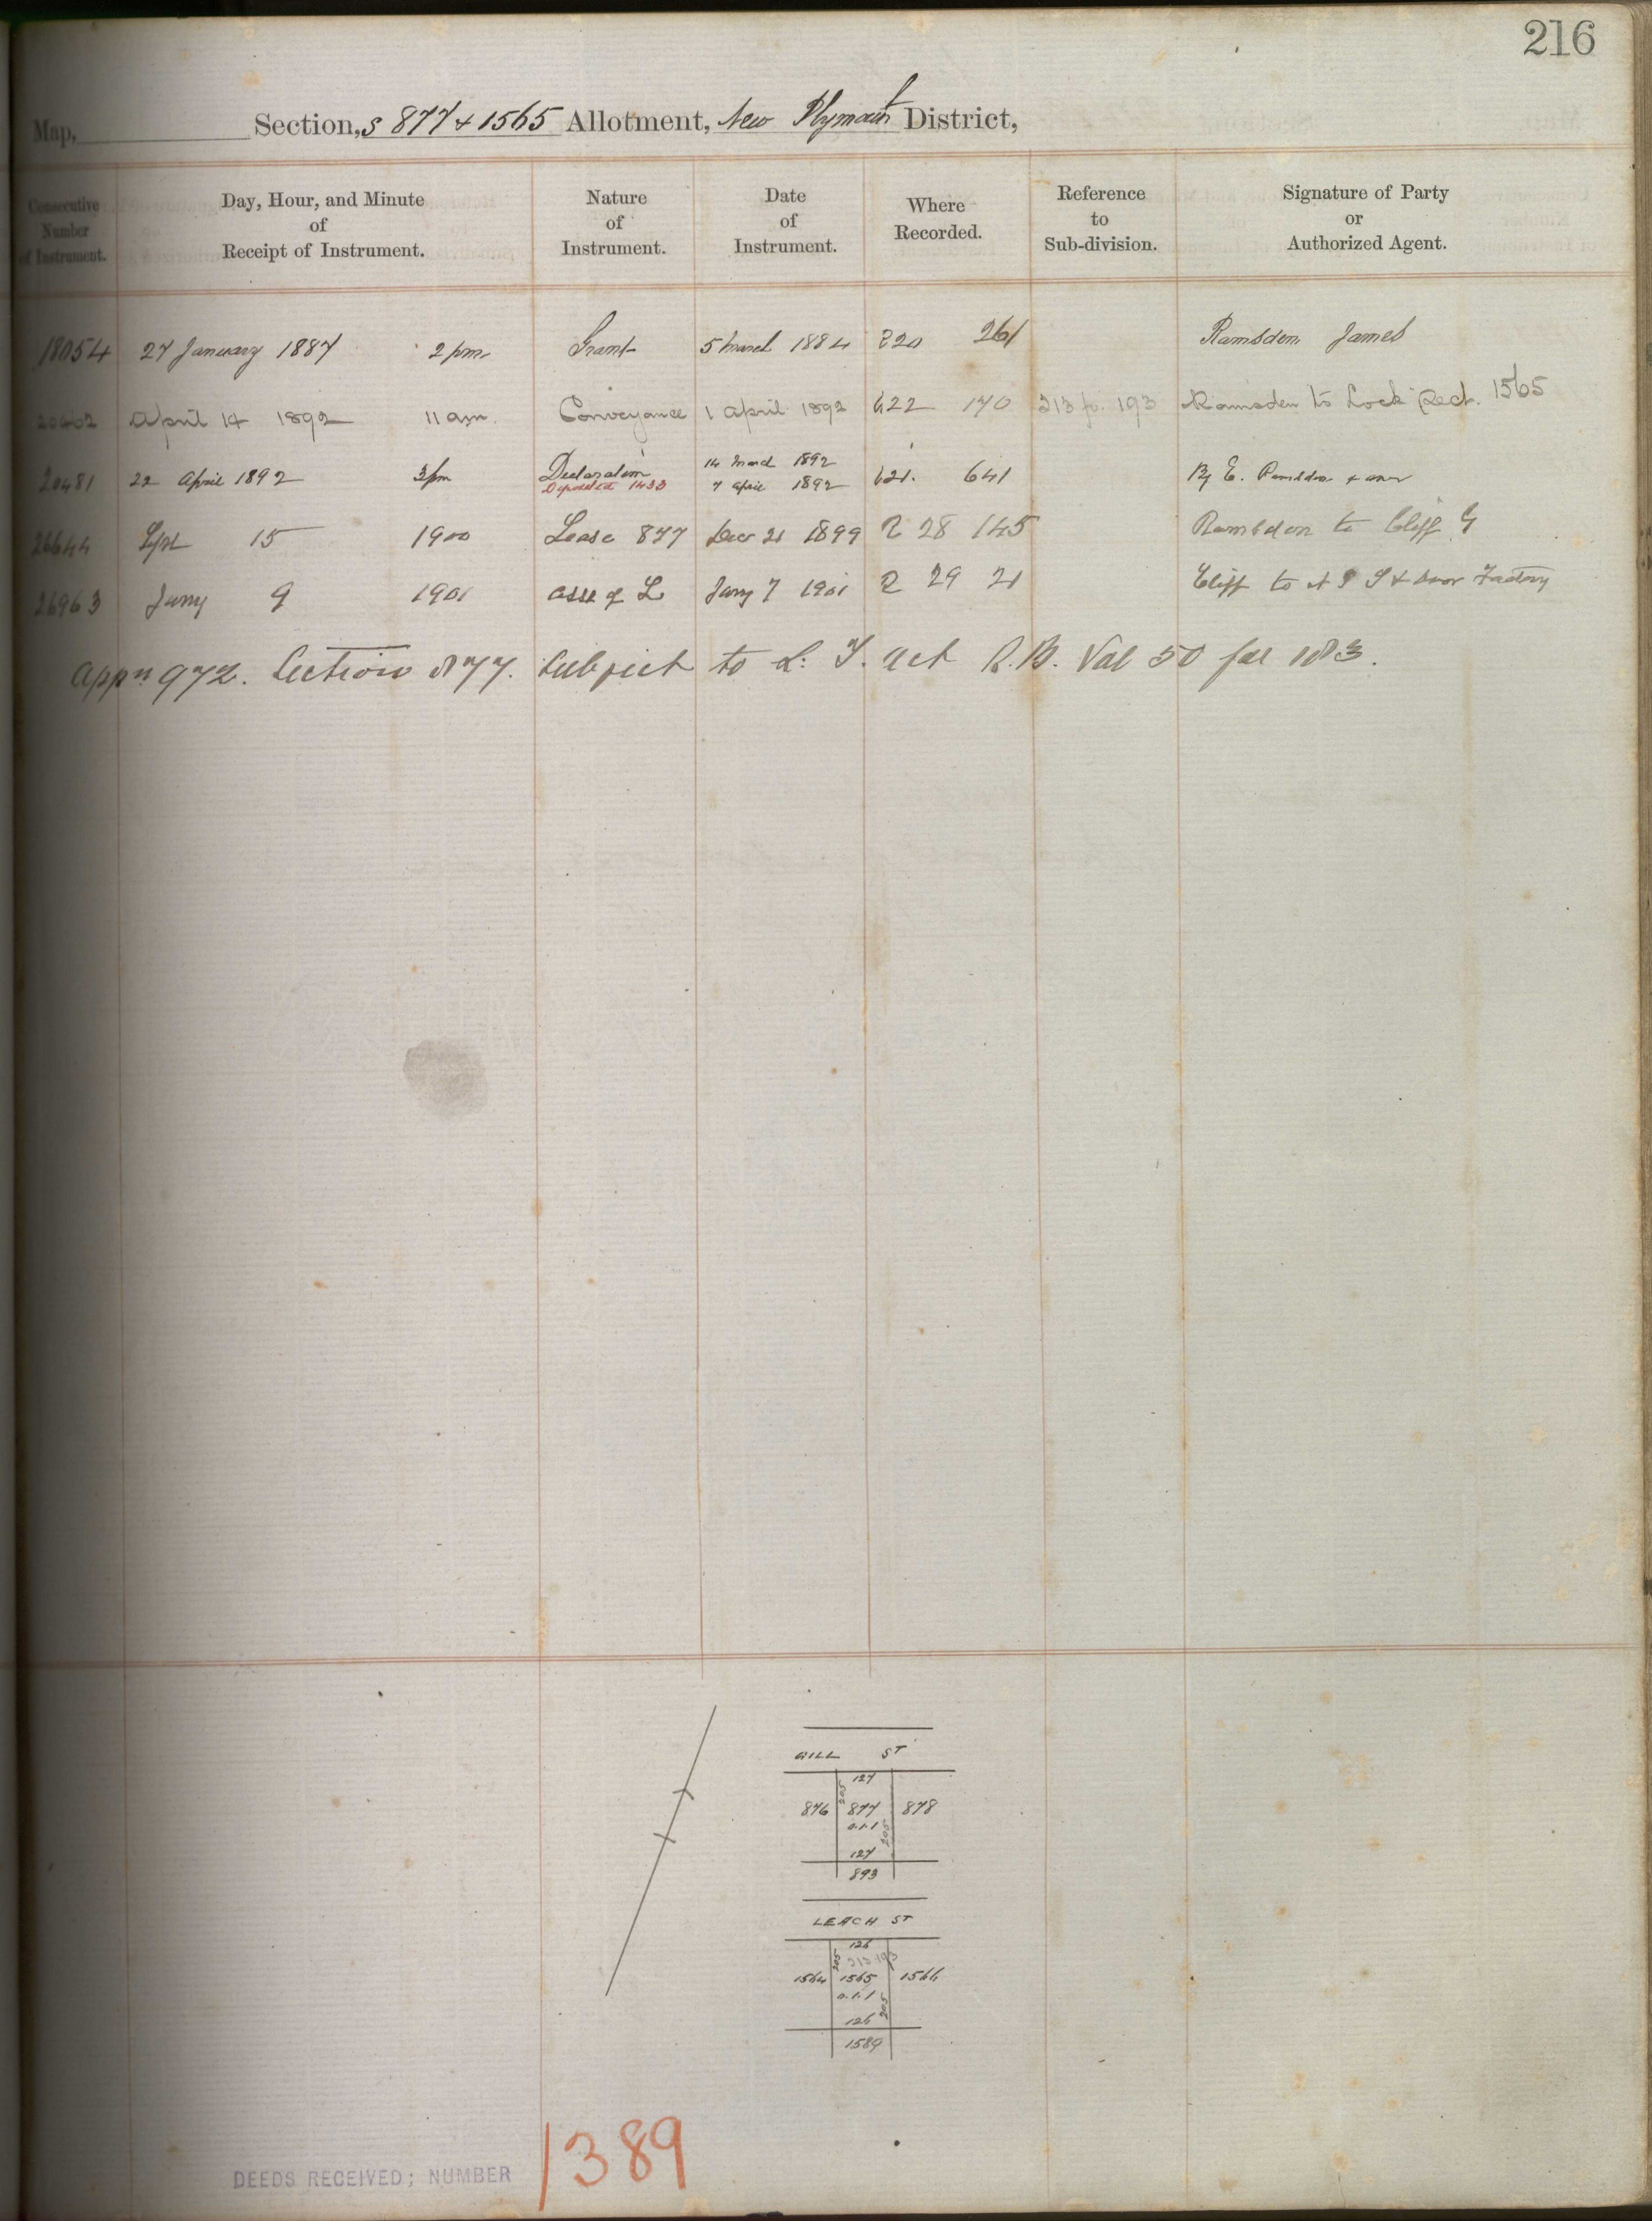 216
Map, Section, s 877 & 1565 Allotment, New Plymouth District,
Consecutive Number of Instrument. Day, Hour, and Minute of Receipt of Instrument. Nature of Instrument. Date of Instrument. Where Recorded. Reference to Sub-division. Signature of Party or Authorized Agent.
18054 27 January 1887 2 pm Grant 5 March 1884 R20 261 Ramsden James
20462 April 14 1892 11 am. Conveyance 1 April 1892 R22 170 213 p. 193 Ramsden to Lock Sect. 1565
20481 22 April 1892 3 pm Declaration 14 March 1892 R21. 641 By E. Ramsden & anor
Deposited 1433 7 April 1892
26644 Sept 15 1900 Lease 877 Decr 21 1899 R 28 145 Ramsden to Cliff G
26963 Jany 9 1901 Ass of L Jany 7 1901 R 29 21 Cliff to N P S & Door Factory
Appn 972. Section 877. Subject to L. T. Act R.B. Vol 50 fol 183.
GILL ST
127
205
876 877 878
0.1.1
205
127
893
LEACH ST
126
205 213 193
1564 1565 1566
0.1.1
205
126
1589
DEEDS RECEIVED; NUMBER 1389